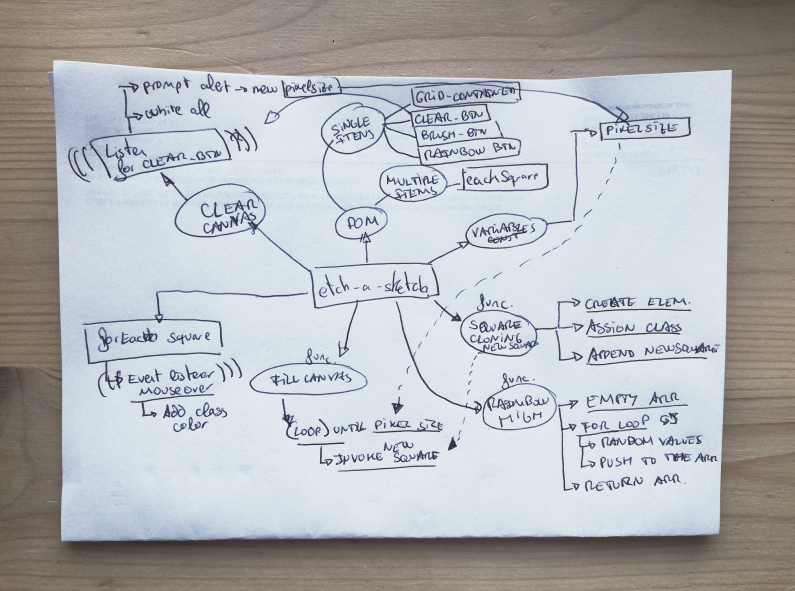 prompt alert → new pixelsize
white all
Listen
for CLEAR_BTN
SINGLE
ITEMS
GRID-CONTAINER
CLEAR-BTN
BRUSH-BTN
RAINBOW BTN
PIXELSIZE
MULTIPLE
ITEMS
eachSquare
CLEAR
CANVAS
DOM
VARIABLES
CONST
etch-a-sketch
forEach square
Event listener
mouseover
Add class
color
func.
FILL CANVAS
(LOOP) UNTIL PIXEL SIZE
INVOKE NEW SQUARE
func.
SQUARE
CLONING
NEWSQUARE
CREATE ELEM.
ASSIGN CLASS
APPEND NEWSQUARE
func.
HIGH
EMPTY ARR
FOR LOOP
RANDOM VALUES
PUSH TO THE ARR
RETURN ARR.